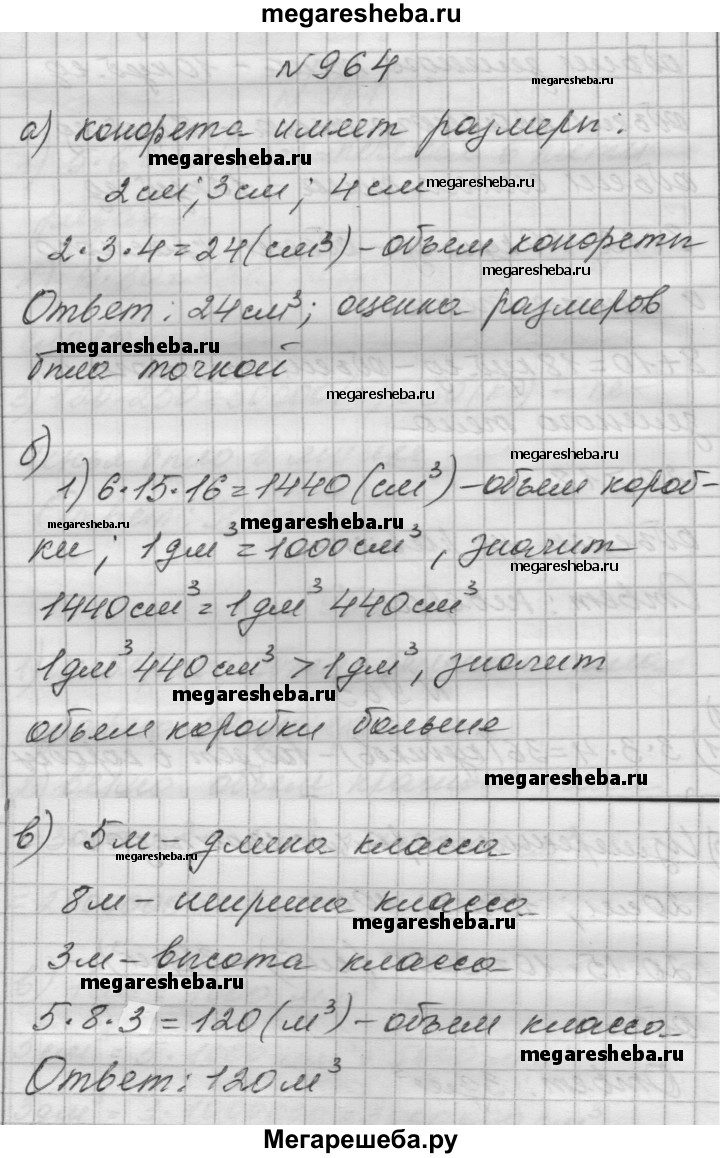 megaresheba.ru
№964
megaresheba.ru
а) конфета имеет размеры:
megaresheba.ru
2см; 3см; 4см
megaresheba.ru
2·3·4=24(см³)-объем конфеты
megaresheba.ru
Ответ: 24см³; оценка размеров
megaresheba.ru
была точной
megaresheba.ru
б)
megaresheba.ru
1) 6·15·16=1440(см³)-объем короб-
megaresheba.ru
megaresheba.ru
ки; 1дм³=1000см³, значит
megaresheba.ru
1440см³=1дм³ 440см³
1дм³ 440см³ > 1дм³, значит
megaresheba.ru
объем коробки больше
megaresheba.ru
в) 5м - длина класса
megaresheba.ru
8м - ширина класса
megaresheba.ru
3м - высота класса
megaresheba.ru
5·8·3=120(м³)-объем класса
megaresheba.ru
Ответ: 120м³
Мегарешеба.ру